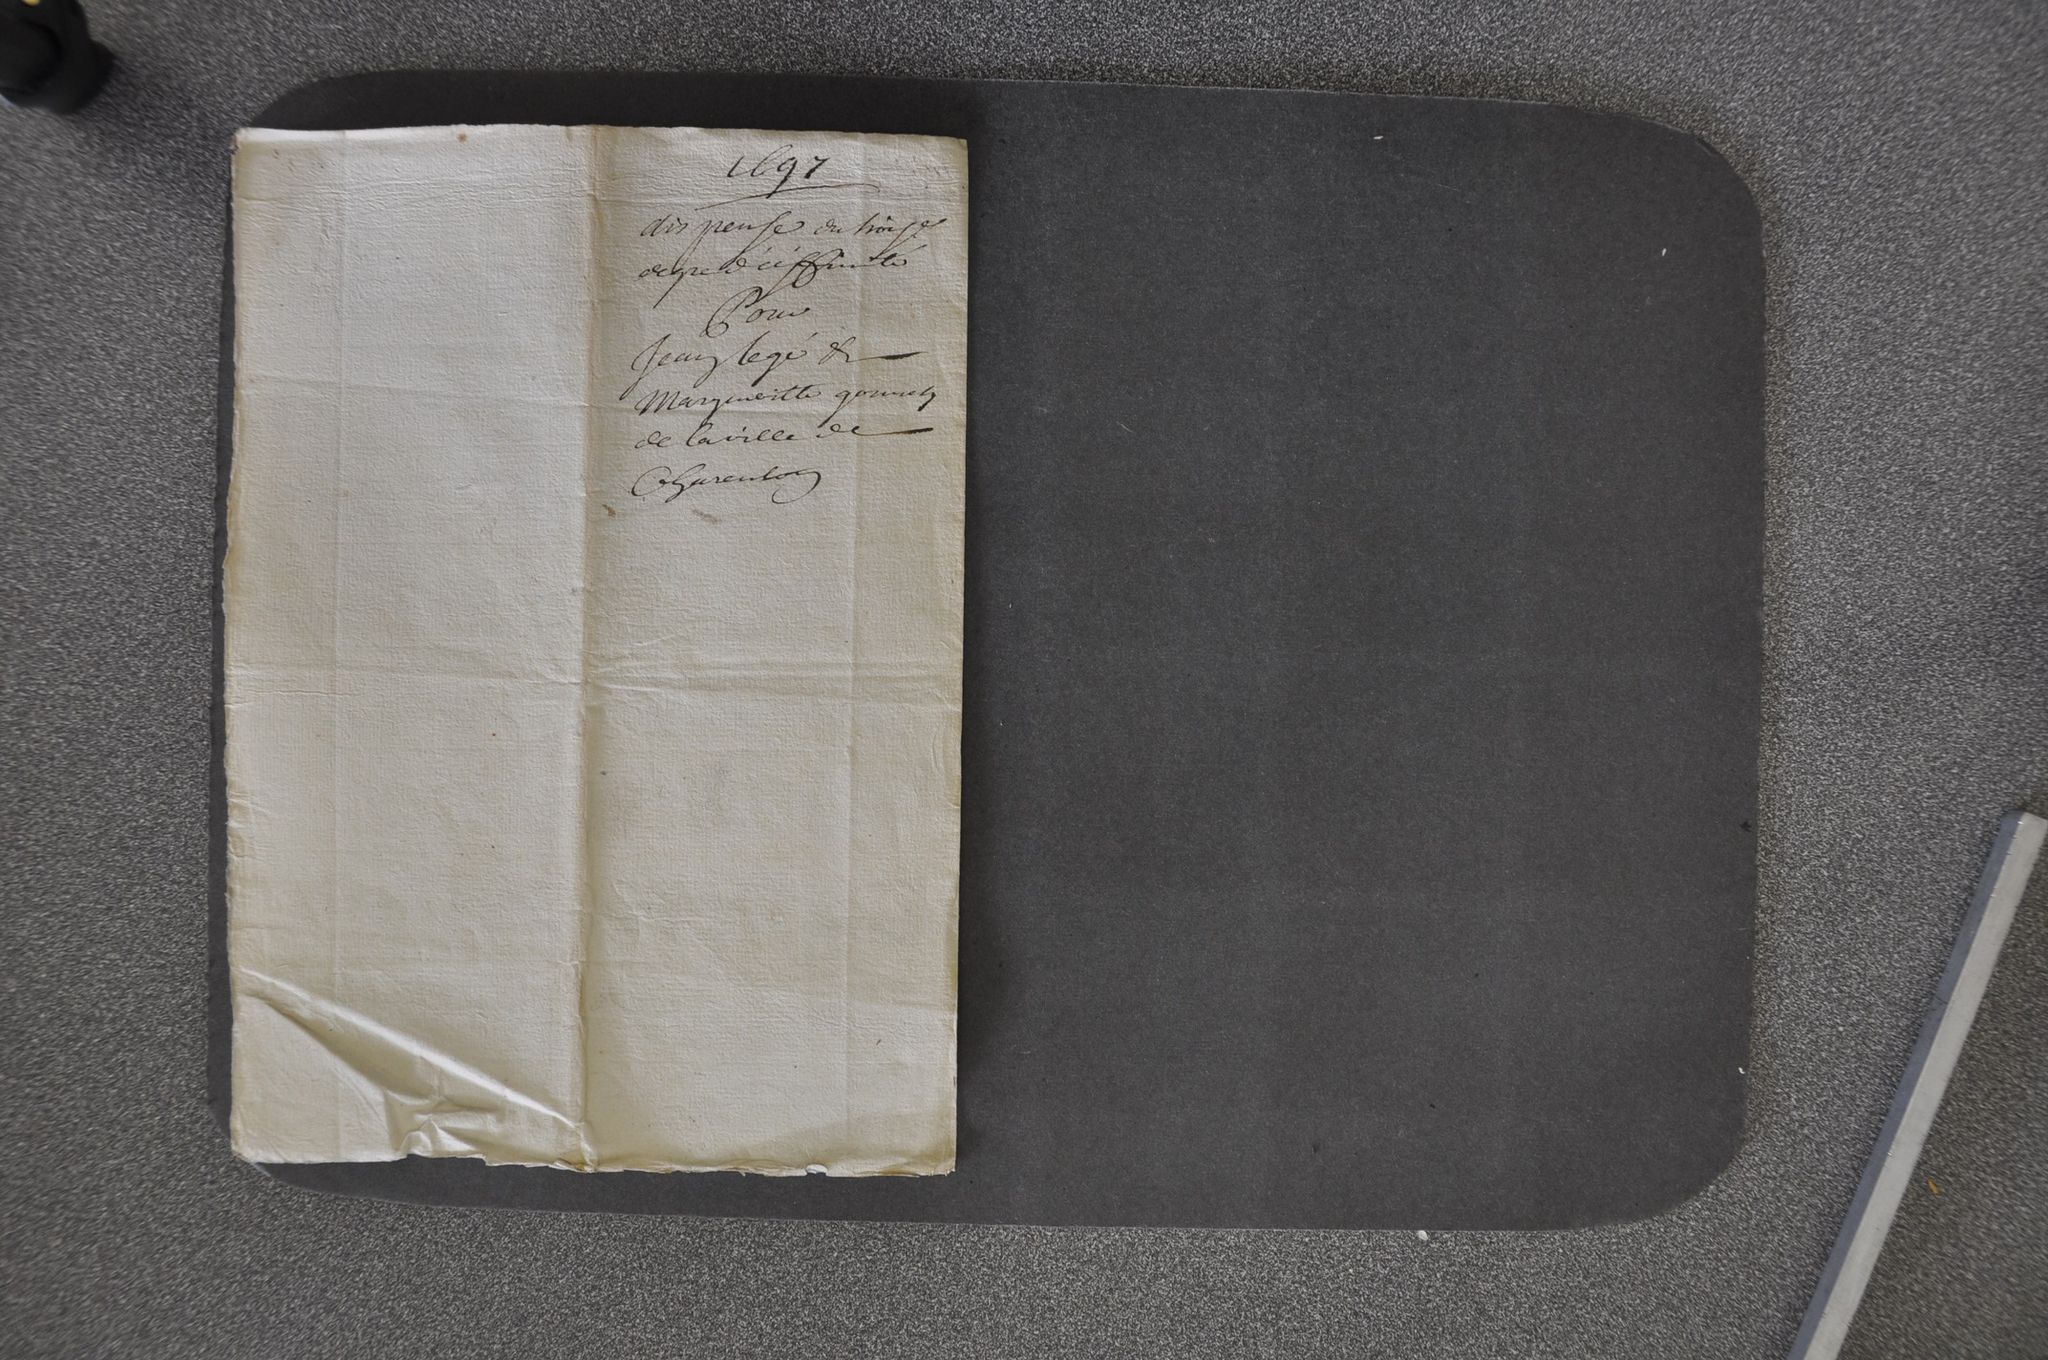 1697
dispense du trois.e
degré d'affinité
Pour
Jean legé &
Margueritte gonnet
de la ville de
Charenton